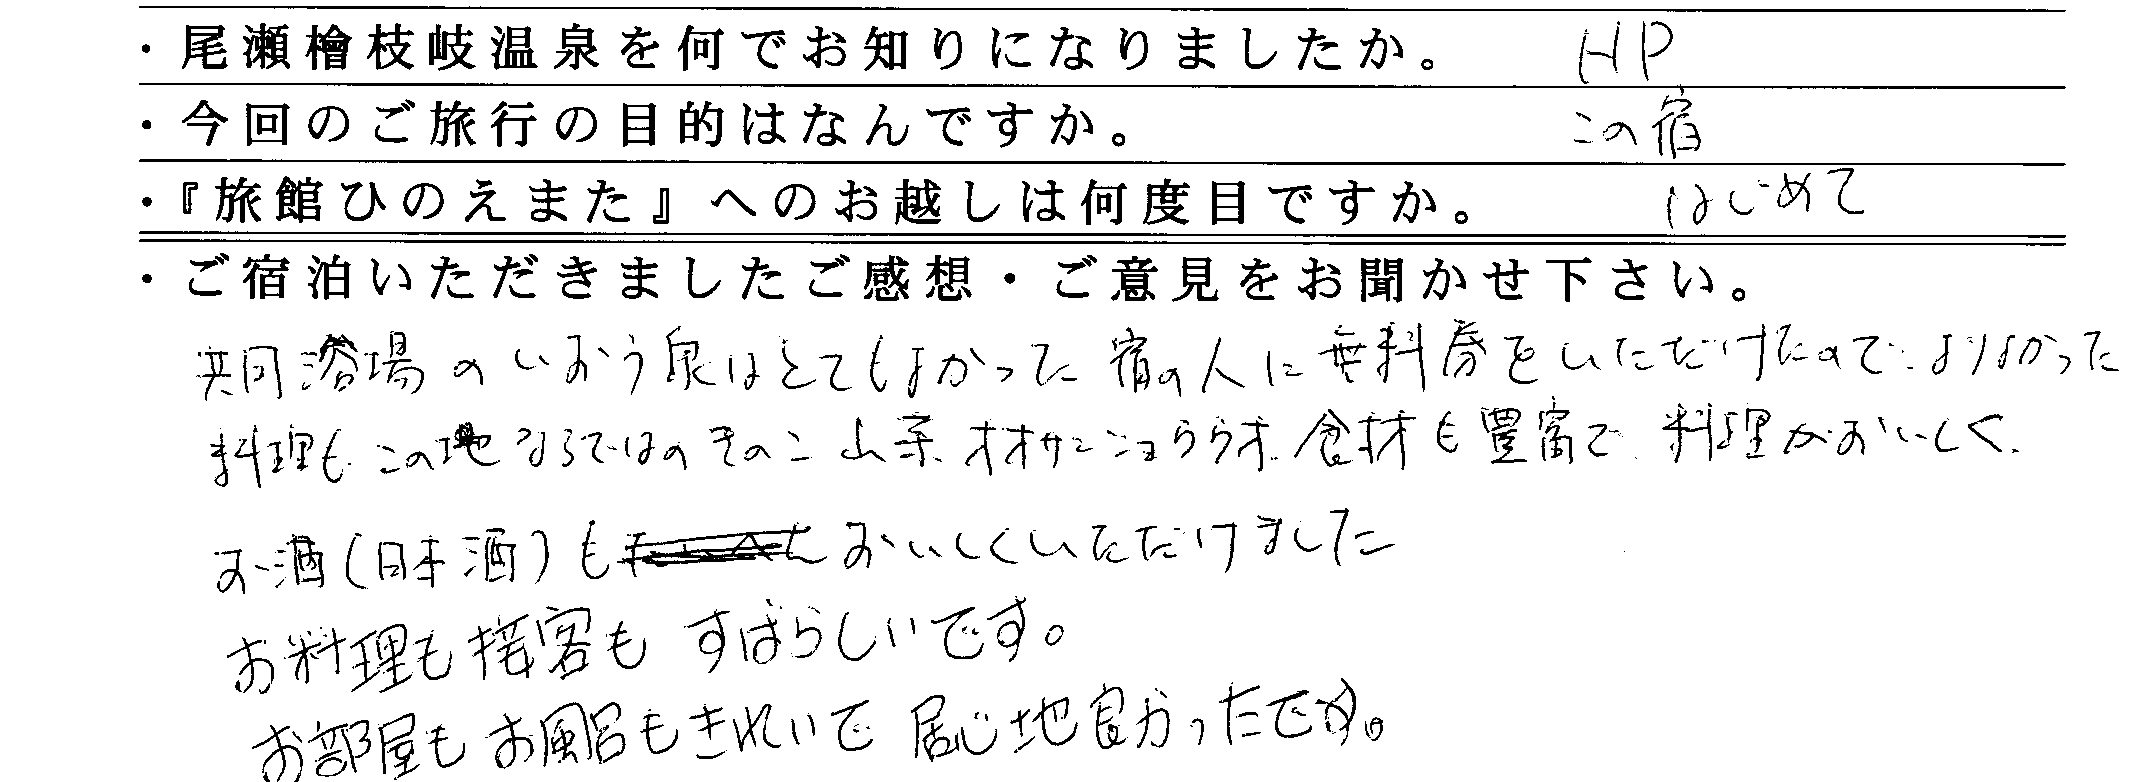 ・尾瀬檜枝岐温泉を何でお知りになりましたか。 HP
・今回のご旅行の目的はなんですか。 この宿
・『旅館ひのえまた』へのお越しは何度目ですか。 はじめて
・ご宿泊いただきましたご感想・ご意見をお聞かせ下さい。
共同浴場のいおう泉はとてもよかった 宿の人に無料券をいただけたので、よりよかった
料理も この地ならではのきのこ 山菜 オオサンショウウオ、食材も豊富で 料理がおいしく、
お酒(日本酒)も おいしくいただけました
お料理も接客も すばらしいです。
お部屋もお風呂もきれいで 居心地良かったです。